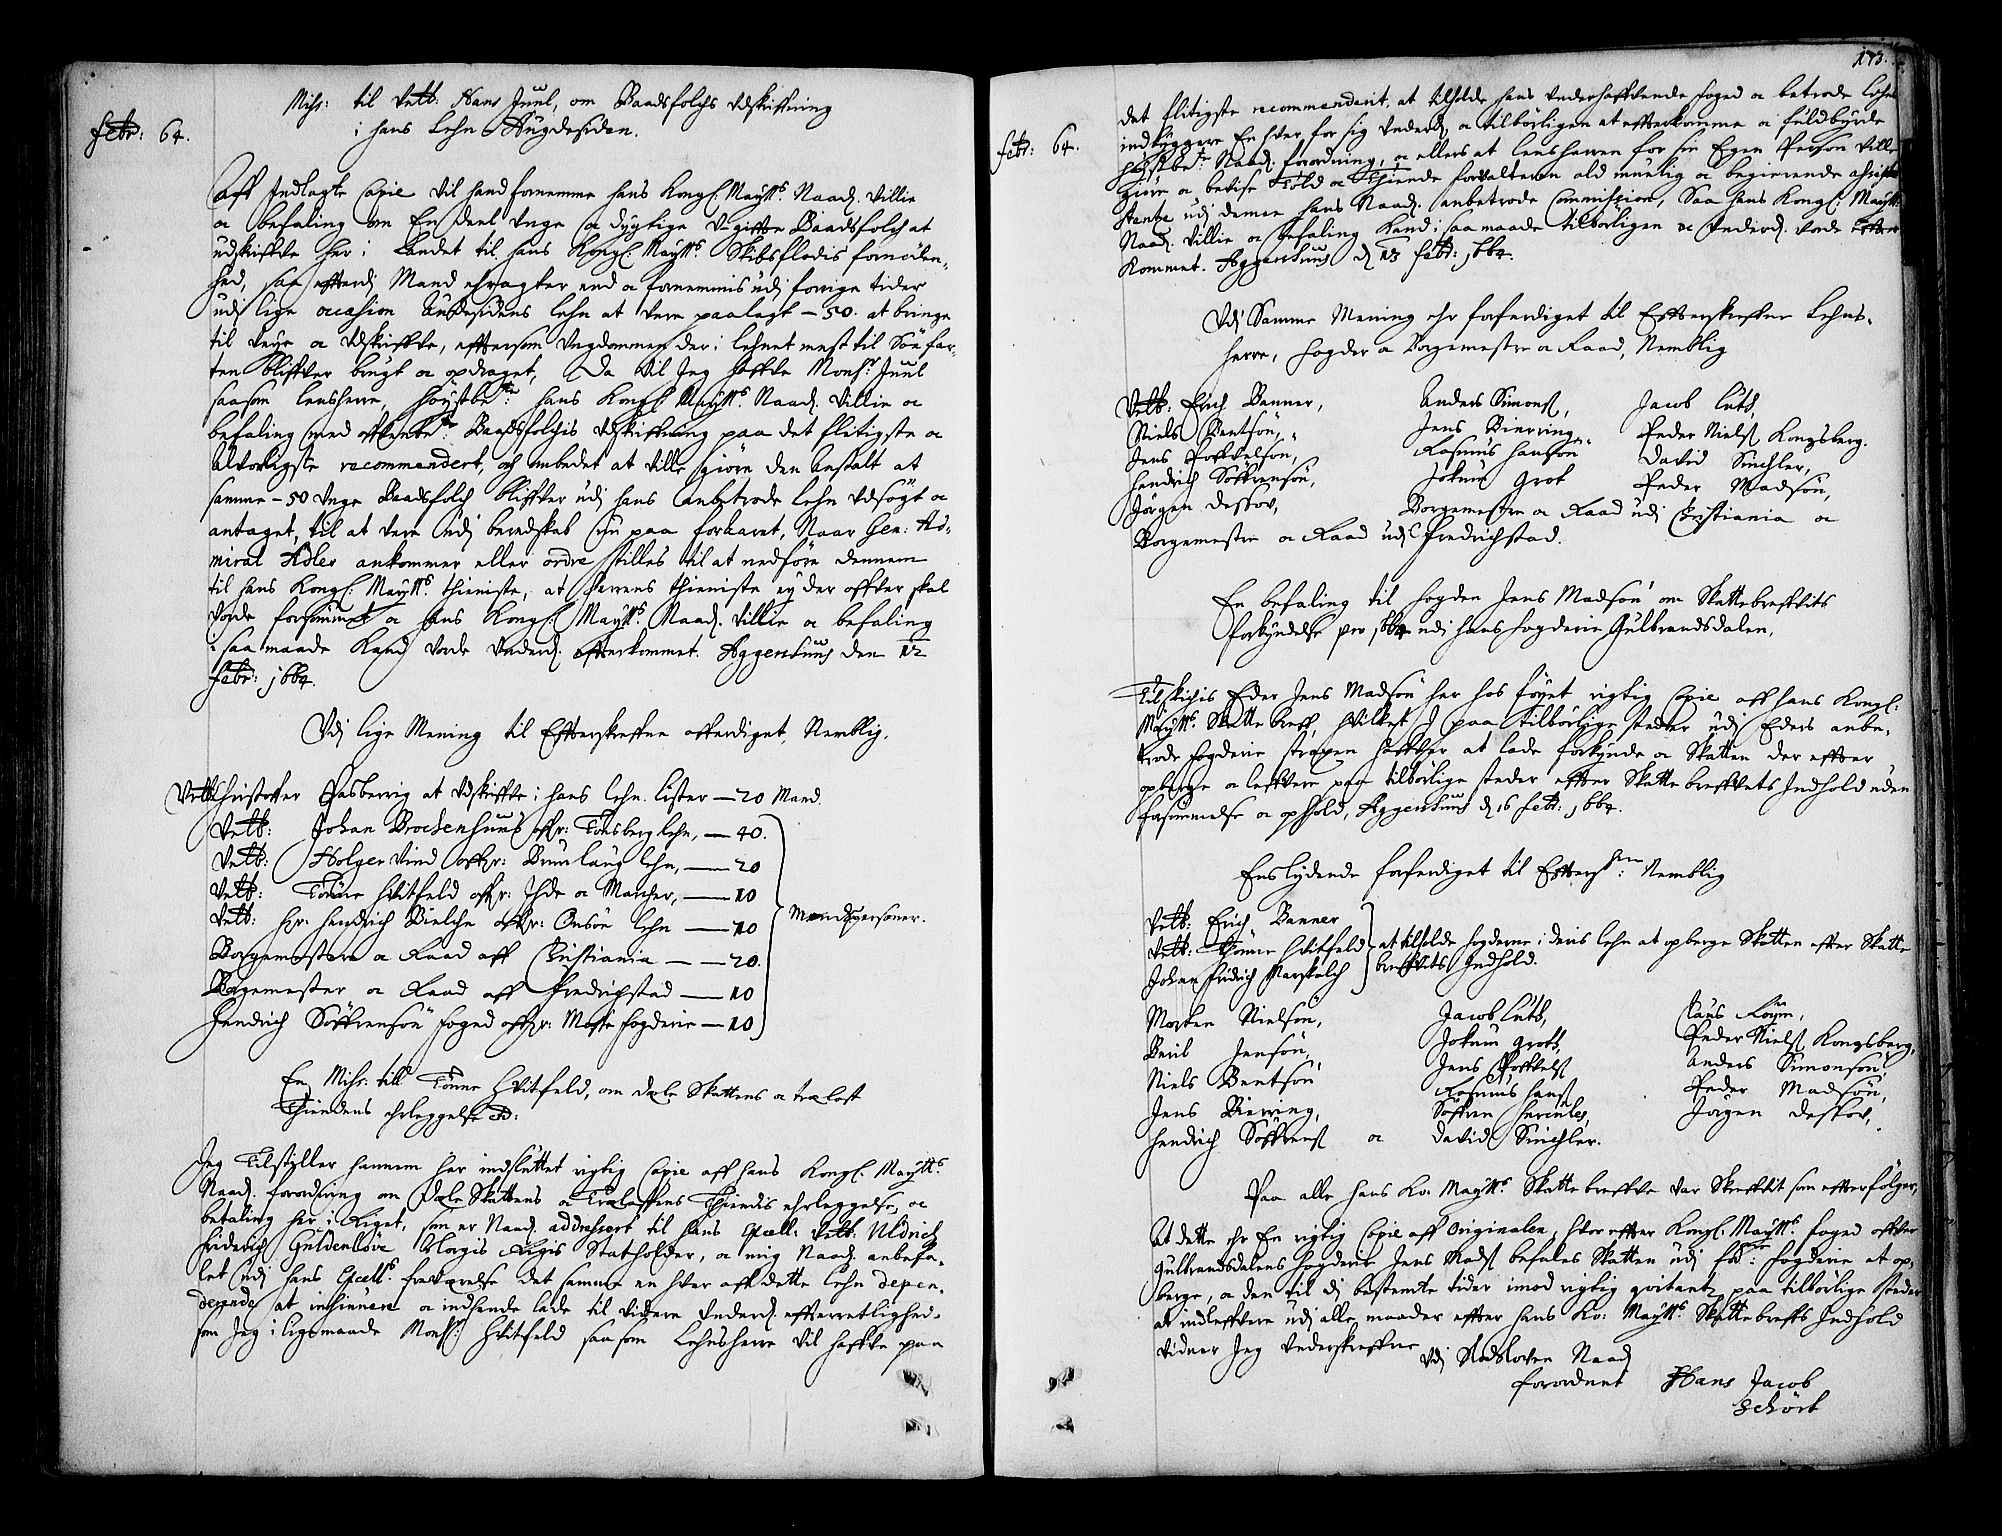 Febr: 64.
Miss: til Velb: Hans Juul, om Baadsfolchs Udskriffning
i hans Lehn Augdesiden.
Aff Indlagte Copie vil hand fornemme hans Kongl: Maytts Naad. Villie
oc befaling om En deel Unge oc dygtige Ugiffte Baadsfolch at
udskriffve her i Landet til hans Kongl: Maytts Skibsflodis fornöden-
hed, saa efterdj Mand ehragter end oc fornemmis udj forrige tider
udj lige occasion Andesidens lehn at vere paalagt – 50. at bringe
til veye oc Udskriffve, effttersom Ungdommen der i lehnet mest til Söefar-
ten bliffver brugt oc opdraget, Da vil Jeg haffve Monsr Juul
saasom lensherre, höystbete hans Kongl: Maytts Naad. Villie oc
befaling med offvenbete Baadsfolchis Udskriffning paa det flitigste oc
Alvorligste recommendert, och ombedet at ville giöre den Anstalt at
samme – 50 Unge Baadsfolch bliffver udj hans anbetrode lehn Udsögt oc
antaget, til at vere udj beredskab nu paa foraaret, Naar Gen: Ad-
miral Adler ankommer eller ordre stilles til at nedföre dennem
til hans Kongl: Maytts thieniste, at herrens thieniste ey der offver skal
vorde forsömmet oc hans Kongl: Maytts Naad. Villie oc befaling
i saa maade Kand vorde Underd. efterkommet. Aggershuus den 12
Febr: 1664.
Udj lige Mening til Effterskreffne afferdiget, Nemblig.
Velb: Christoffer Pasberrig at Udskriffve i hans lehn Lister – 20 Mand.
Velb: Johan Brochenhuus offr: Tönsberg lehn, – 40.
Velb: Holger Vind offr: Brunlaug lehn, – 20
Velb: Tönne Hvitfeld offr: Ihde oc Marcher, – 10
Velb: Hr: Hendrich Bielche offr: Onsöe lehn – 10
Borgemestere oc Raad aff Christiania – 20.
Borgemester oc Raad aff Fredrichstad – 10
Hendrich Söffrensön foged offr: Mosse fogderie – 10
Mandspersoner.
En Miss: till Tönne Hvitfeld, om Dele Skattens oc trælast
Thiendens ehrleggelse etc:
Jeg Tilstiller hannem her indsluttet rigtig Copie aff hans Kongl: Maytts
Naad. forordning om Dele Skattens oc Trælastens Thiendis ehrleggelse, oc
betaling her i Riget, som er Naad. addresseret til hans Excell: Velb: Uldrich
Friderich Güldenlöve Norgis Rigis Statholder, oc mig Naad. anbefa-
let udj hans Excells fraværelse det samme en hver aff dette lehn depen-
derende at insinuere oc indsende lade til videre Underd. efterretlighed,
som Jeg i ligemaade Monsr: Hvitfeld saa som Lehnsherre vil haffve paa
173.
Febr: 64.
det flitigste recommenderit, at tilholde hans Underhaffvende foged oc betrode lehns
indbyggere En hver for sig Underd. oc tilbörligen at efterkomme oc fuldbyrde
höystbete Naad. forordning, oc ellers at lensherren for sin Egen Person ville
giöre oc bevise Told oc Thiende forvalteren ald muelig oc begierende assi-
stantz udj denne hans Naad. anbetrode Commission, Saa hans Kongl: Maytts
Naad. Villie oc befaling Kand i saa maade tilbörligen oc Underd. vorde effter-
kommet. Aggershuus d 13 Febr: 1664.
Udj Samme Mening ehr forferdiget til Effterskreffne Lehns-
herre, fogder oc Borgemestre oc Raad, Nemblig
Velb: Erich Banner,
Niels Bentsön,
Jens Poffvelsön,
Hendrich Söffrensön,
Jörgen Dessov,
Anders Simons,
Jens Bierring,
Rasmus Hansön
Jokum Grot
Jacob Luts,
Peder Niels Kongsberg.
David Sinchler,
Peder Madsön,
Borgemestre oc Raad udj Christiania oc
Borgemestre oc Raad udj Fredrichstad.
En befaling til fogden Jens Madsön om Skattebreffvits
forkyndelse pro 1664 udj hans fogderie Gulbrandsdalen,
Tilskichis Eder Jens Madsön her hos föyet rigtig Copie aff hans Kongl:
Maytts Skatte breff, hvilket I paa tilbörlige steder udj Eders anbe-
trode fogderie straxen haffver at lade forkynde oc Skatten der effter
opberge oc leffvere paa tilbörlige steder effter Skatte breffvets Indhold uden
forsömmelse oc ophold, Aggershuus d 16 Febr: 1664.
Enslydende forferdiget til Effterskne: Nemblig
Velb: Erich Banner
Velb: Tönne Hvitfeld
Johan Fridrich Marschalch
at tilholde fogderne i deris lehn at opberge Skatten effter Skatte
breffvits Indhold.
Morten Nielsön,
Bent Jensön,
Niels Bentsön
Jens Bierring,
Hendrich Söffrens oc
Jacob Luts,
Jokum Grots,
Jens Poffvels
Rasmus Hans
Söffren Hercules,
David Sinchler.
Claus
Peder Niels Kongsberg,
Anders Simonsön
Peder Madsön,
Jörgen Dessov,
Paa alle hans Ko: Maytts Skatte breffve var Skreffvit som effterfölger,
At dette ehr En rigtig Copie aff Originalen, hvor effter Kongl: Maytts foged offver
Gulbrandsdalens fogderie Jens Mads befales Skatten udj fbte: fogderie at op-
berge, oc den til di bestemte tider imod rigtig qvitantz paa tilbörlige steder
at indleffvere udj alle maader effter hans Ko: Maytts Skattebreffs Indhold
vidner Jeg Underskreffne
Udj Stadtloven Naad.
forordnet Hans Jacob
Schört